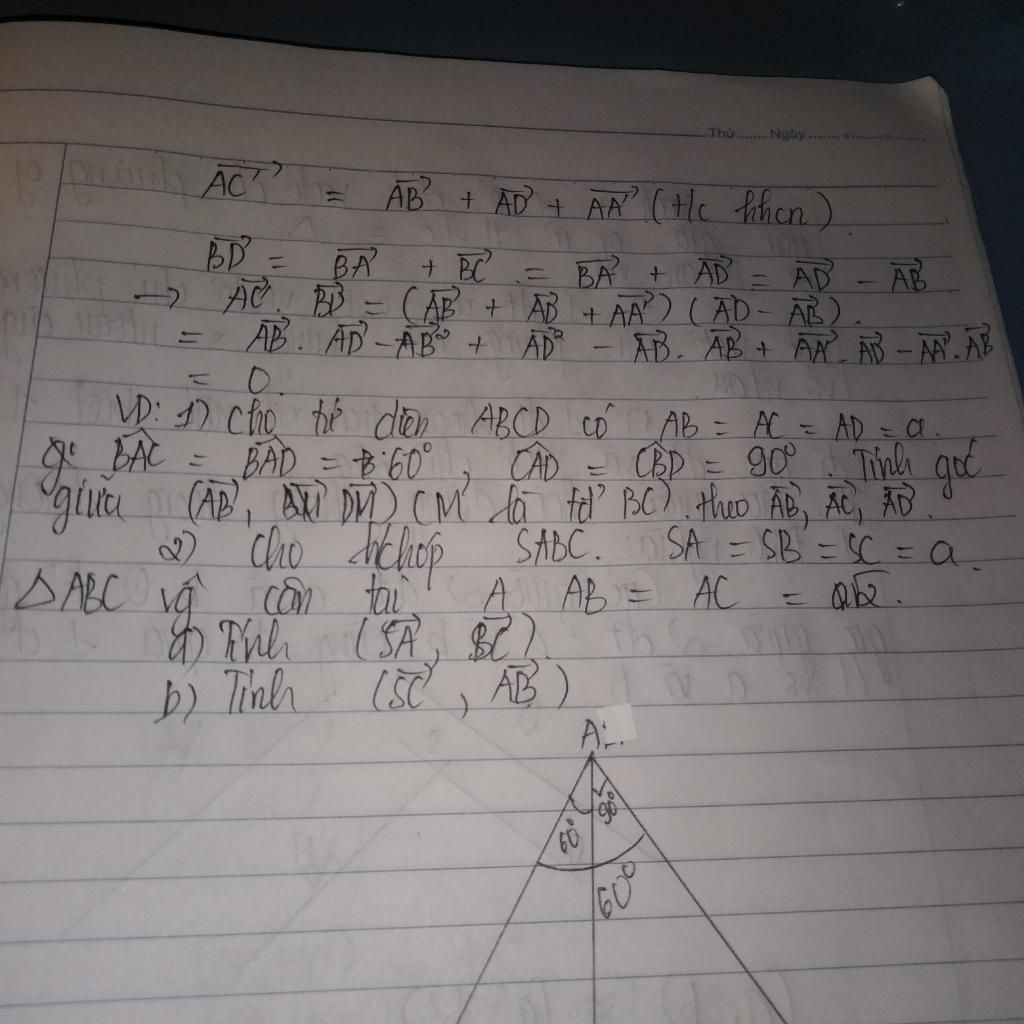 Thứ....... Ngày.......
AC'→ = AB→ + AD→ + AA'→ (t/c hhcn)
BD→ = BA→ + BC→ = BA→ + AD→ = AD→ - AB→
→ AC'→. BD→ = (AB→ + AD→ + AA'→) (AD→ - AB→).
= AB→. AD→ - AB→² + AD→² - AD→. AB→ + AA'→. AD→ - AA'→. AB→
= 0.
VD: 1) Cho tứ diện ABCD có AB = AC = AD = a.
góc BAC = BAD = 60°, CAD = CBD = 90°. Tính góc
giữa (AB→, DM→) (M là tđ BC) theo AB→, AC→, AD→.
2) Cho hchóp SABC. SA = SB = SC = a.
△ABC vg cân tại A AB = AC = a√2.
a) Tính (SA→, BC→).
b) Tính (SC→, AB→)
A
60° 90°
60°